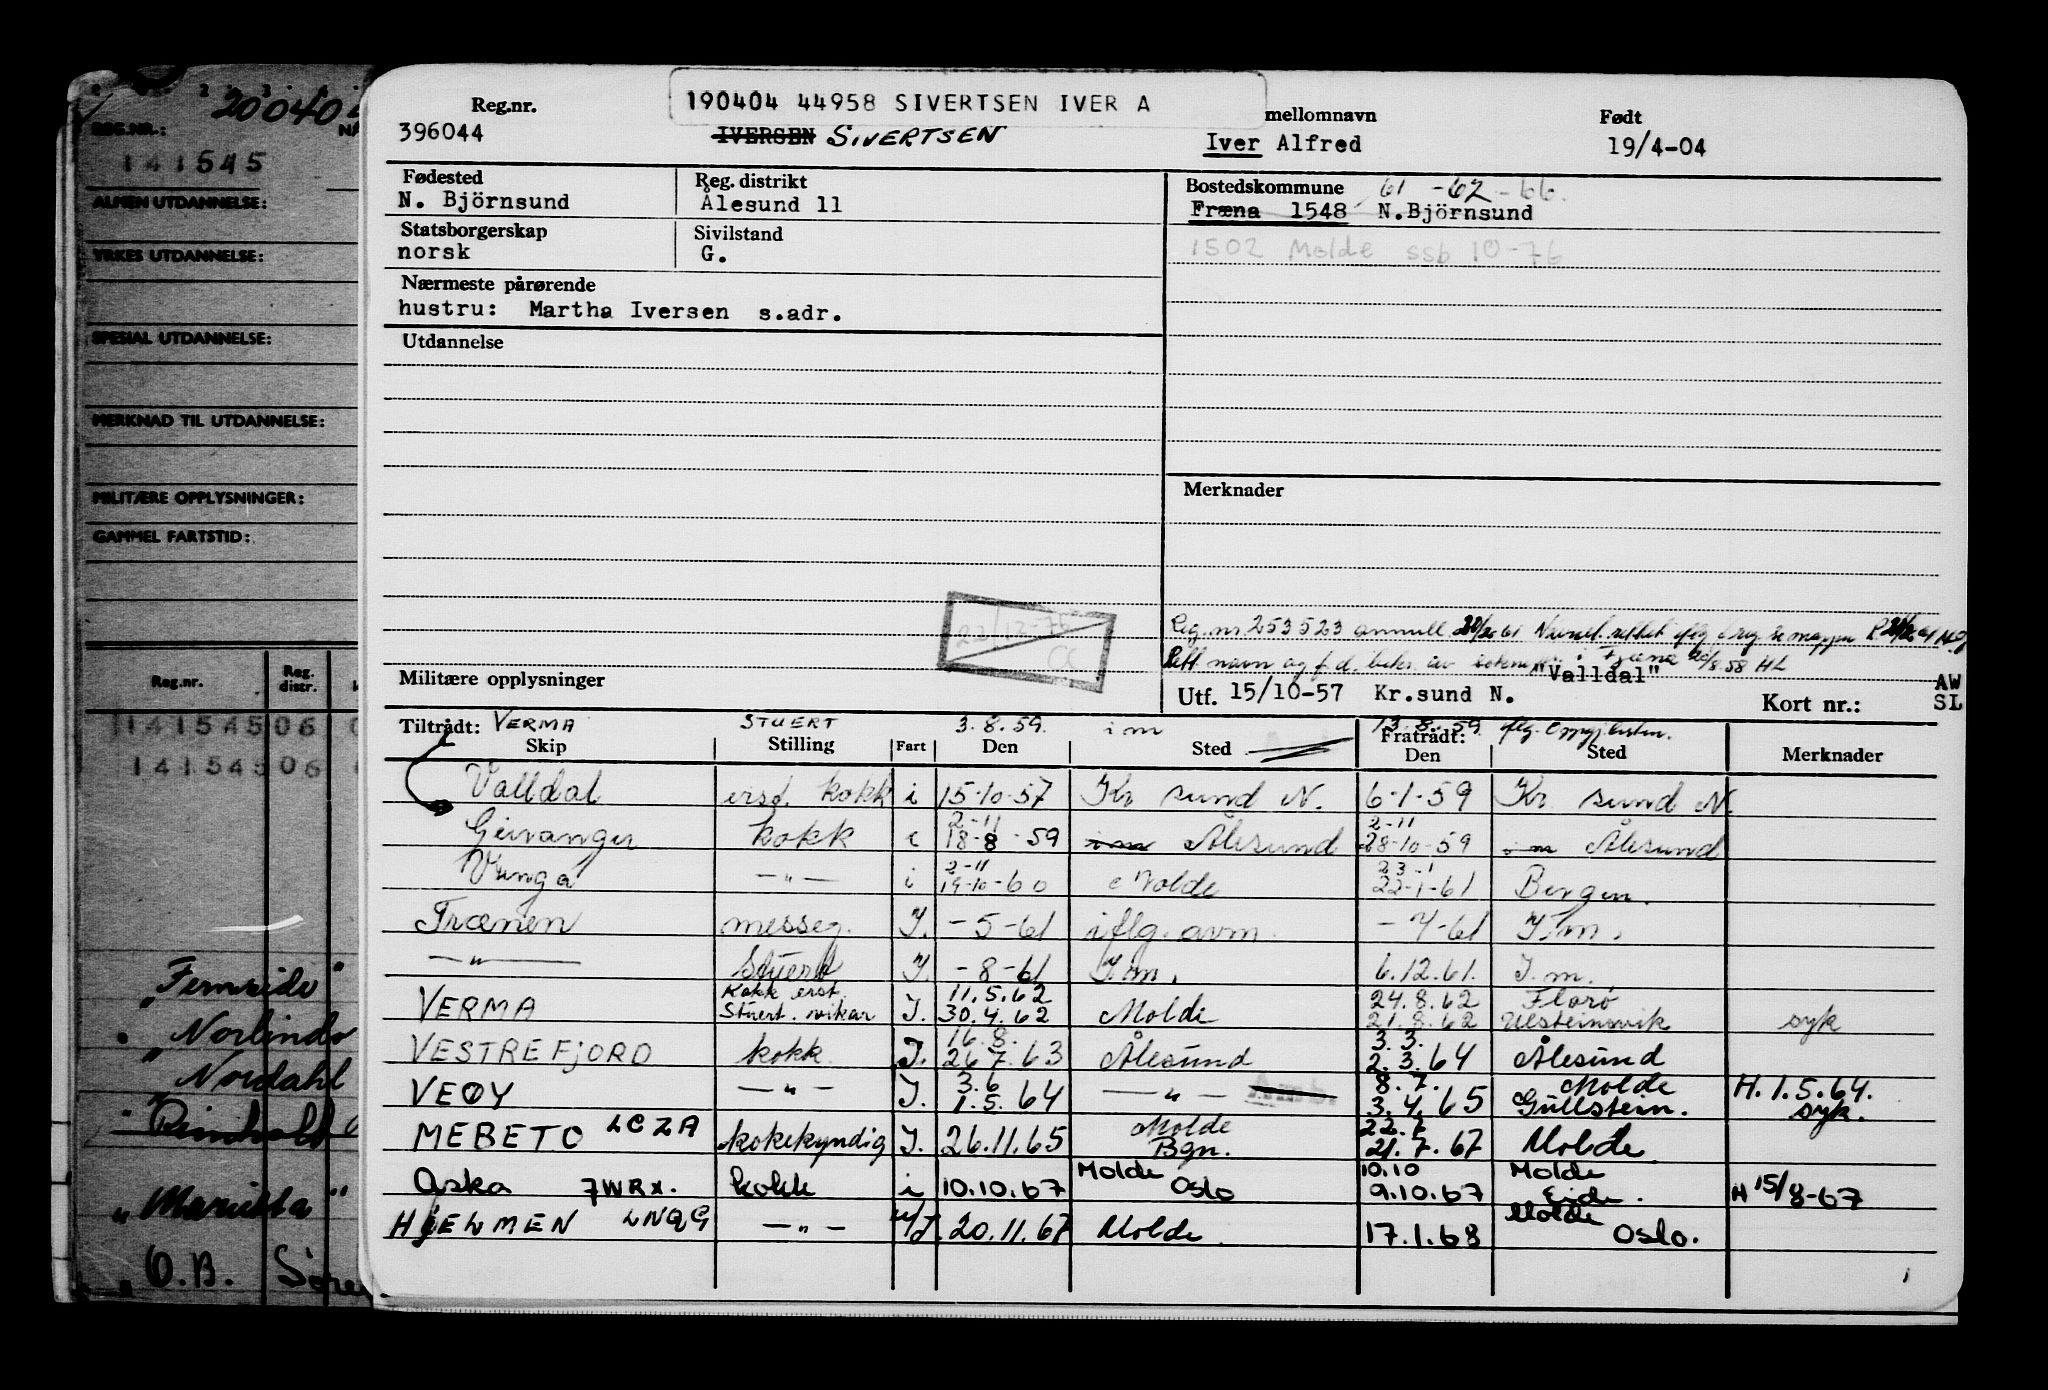 200404
REG.NR.:
141545
ALMEN UTDANNELSE:
YRKES UTDANNELSE:
SPESIAL UTDANNELSE:
MERKNAD TIL UTDANNELSE:
MILITÆRE OPPLYSNINGER:
GAMMEL FARTSTID:
Reg.nr. Reg. distr.
141545 06
141545 06
"Fernside"
"Norlindo
"Nordahl
"Reinholt
"Marietta"
"O.B. Sören
190404 44958 SIVERTSEN IVER A
Reg.nr. mellomnavn Født
396044 IVERSEN SIVERTSEN Iver Alfred 19/4-04
Fødested Reg. distrikt Bostedskommune 61 -62 -66.
N. Björnsund Ålesund 11 Fræna 1548 N.Björnsund
Statsborgerskap Sivilstand 1502 Molde ssb 10-76
norsk G.
Nærmeste pårørende
hustru: Martha Iversen s.adr.
Utdannelse
Merknader
Reg.nr. 253523 annull
Rett navn og f.d.
"Valldal"
Militære opplysninger
Utf. 15/10-57 Kr.sund N. Kort nr.: AW SL
Tiltrådt: VERMA STUERT 3.8.59. i m Fratrådt: 13.8.59
Skip Stilling Fart Den Sted Den Sted Merknader
Valldal erst. kokk i 15-10-57 Kr sund N. 6-1-59 Kr sund N.
2-11 2-11
Geiranger kokk i 18-8-59 i m Ålesund 28-10-59 i m Ålesund
2-11 23-1
Vringa —"— i 19-10-60 Molde 22-1-61 Bergen.
Trænen messeg. I. -5-61 iflg. avm. -7-61 I.m.
—"— Stuert I. -8-61 I.m. 6.12.61. I.m.
Kokk erst. 11.5.62 24.8.62 Florø
VERMA Stuert. vikar I. 30.4.62 Molde 21.8.62 Ulsteinsvik syk
16.8. 3.3.
VESTREFJORD kokk I. 26.7.63 Ålesund 2.3.64 Ålesund
3.6 8.7. Molde H. 1.5.64.
VEØY —"— I. 1.5.64 —"— 3.4.65 Gullstein. syk.
Molde 22.7
MEBETO LCZA kokkekyndig I. 26.11.65 Bgn. 21.7.67 Molde
Molde 10.10 Molde
Aska JWRX. kokk i 10.10.67 Oslo 9.10.67 Eide. H 15/8-67
Molde
HJELMEN LNQG —"— U/I. 20.11.67 Molde 17.1.68 Oslo.